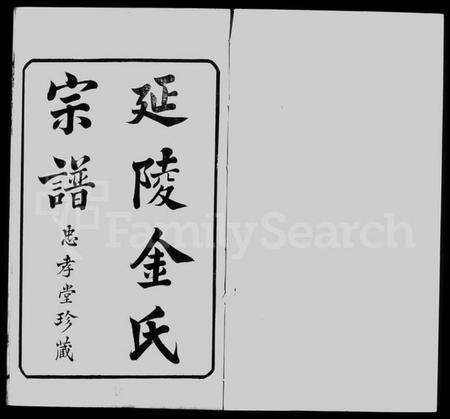 延陵金氏
宗譜
忠孝堂珍藏
FamilySearch